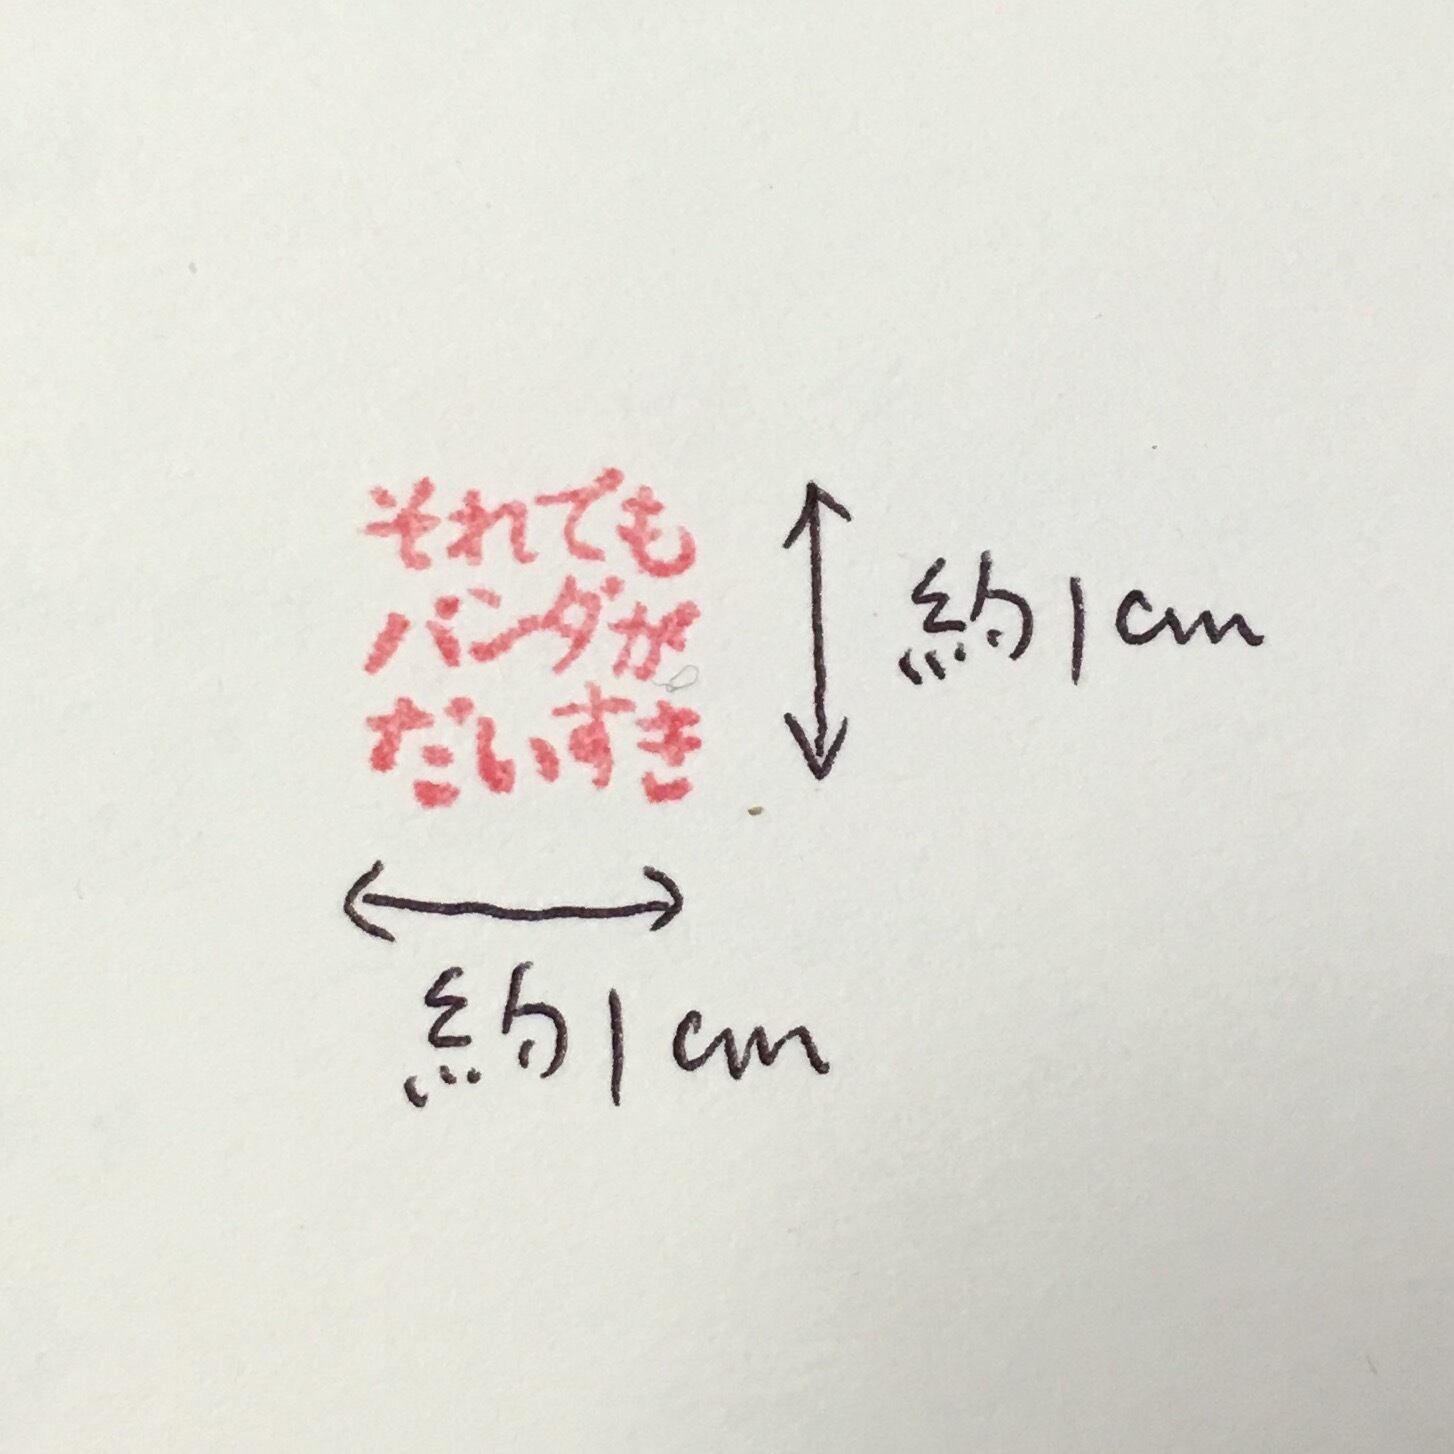 それでも
パンダが
だいすき
約1cm
約1cm